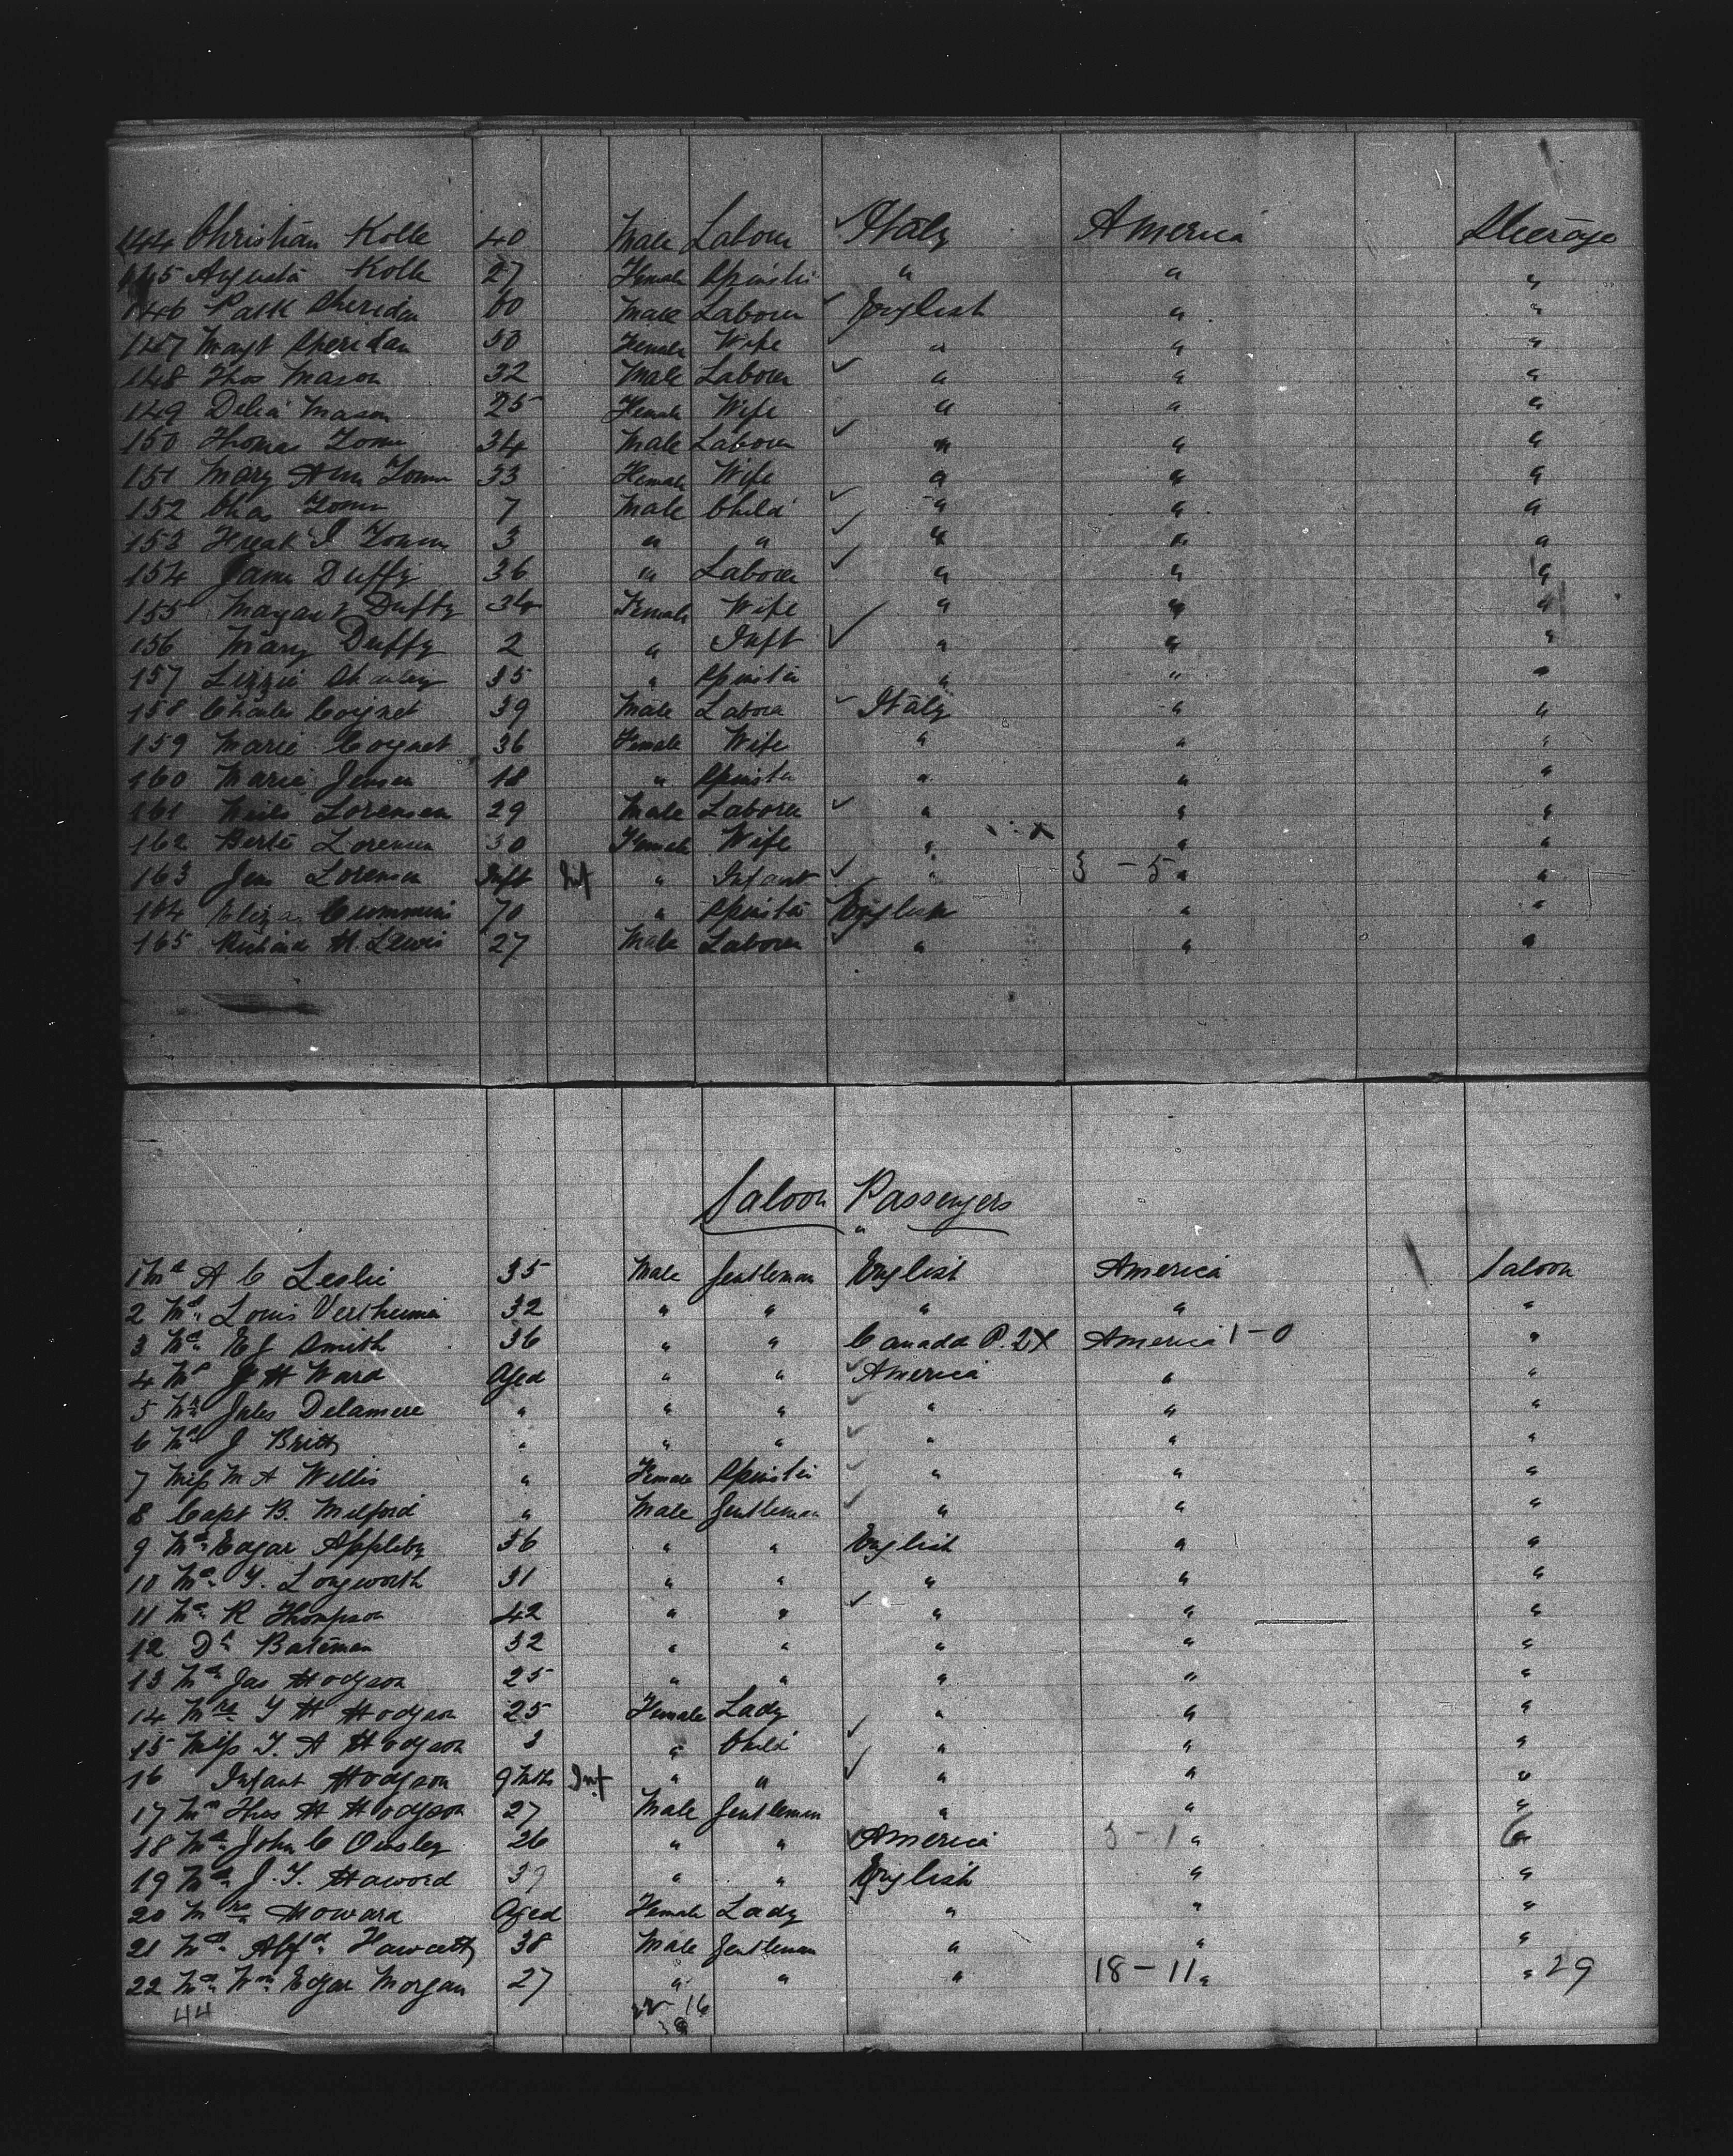 144 Christian Kolle 40 Male Laborer ✓ Italy America Steerage
145 Augusta Kolle 27 Female Spinster " " "
146 Patk Sheridan 60 Male Laborer ✓ English " "
147 Margt Sheridan 50 Female Wife ✓ " " "
148 Thos Mason 32 Male Laborer ✓ " " "
149 Delia Mason 25 Female Wife " " "
150 Thomas 34 Male Laborer ✓ " " "
151 Mary Ann 33 Female Wife " " "
152 Chas 7 Male Child ✓ " " "
153 3 " " ✓ " " "
154 James Duffy 36 " Laborer ✓ " " "
155 Margaret Duffy 34 Female Wife " " "
156 Mary Duffy 2 " Inft ✓ " " "
157 Lizzie 35 " Spinster " " "
158 Charles Coignet 39 Male Laborer ✓ Italy " "
159 Marie Coignet 36 Female Wife " " "
160 Marie Jensen 18 " Spinster " " "
161 Lorensen 29 Male Laborer ✓ " " "
162 Lorensen 30 Female Wife " " "
163 Jens Lorensen Inft Inf " Infant ✓ " 3 - 5 " "
164 Eliza Cummins 70 " Spinster English " "
165 Richard H. Lewis 27 Male Laborer ✓ " " "
Saloon Passengers
1 Mr A C Leslie 35 Male Gentleman English America Saloon
2 Mr Louis Vertheimer 32 " " " " "
3 Mr E J Smith 36 " " Canada P. 2 X America 1-0 "
4 Mr J H Ward Aged " " ✓ America " "
5 Mr Jules Delamere " " " ✓ " " "
6 Mr J Britt " " " ✓ " " "
7 Miss M A Willis " Female Spinster ✓ " " "
8 Capt B. Milford " Male Gentleman ✓ " " "
9 Mr Edgar Appleby 36 " " English " "
10 Mr T. Longworth 31 " " " " "
11 Mr R Thompson 42 " " ✓ " " "
12 Dr Bateman 32 " " " " "
13 Mr Jas Hodgson 25 " " " " "
14 Mrs T H Hodgson 25 Female Lady " " "
15 Miss T. A Hodgson 3 " Child ✓ " " "
16 Infant Hodgson 9 Mths Inf " " ✓ " " "
17 Mr Thos H Hodgson 27 Male Gentleman " " "
18 Mr John C Ousley 26 " " ✓ America 3 - 1 " "
19 Mr J. T. Haword 39 " " English " "
20 Mrs Howard Aged Female Lady " " "
21 Mr Alfd Fawcett 38 Male Gentleman " " "
22 Mr Wm Edgar Morgan 27 " " " 18 - 11 " " 29
44 16